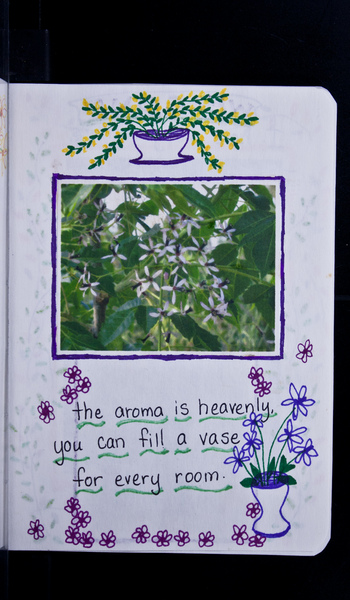 the aroma is heavenly,
you can fill a vase
for every room.